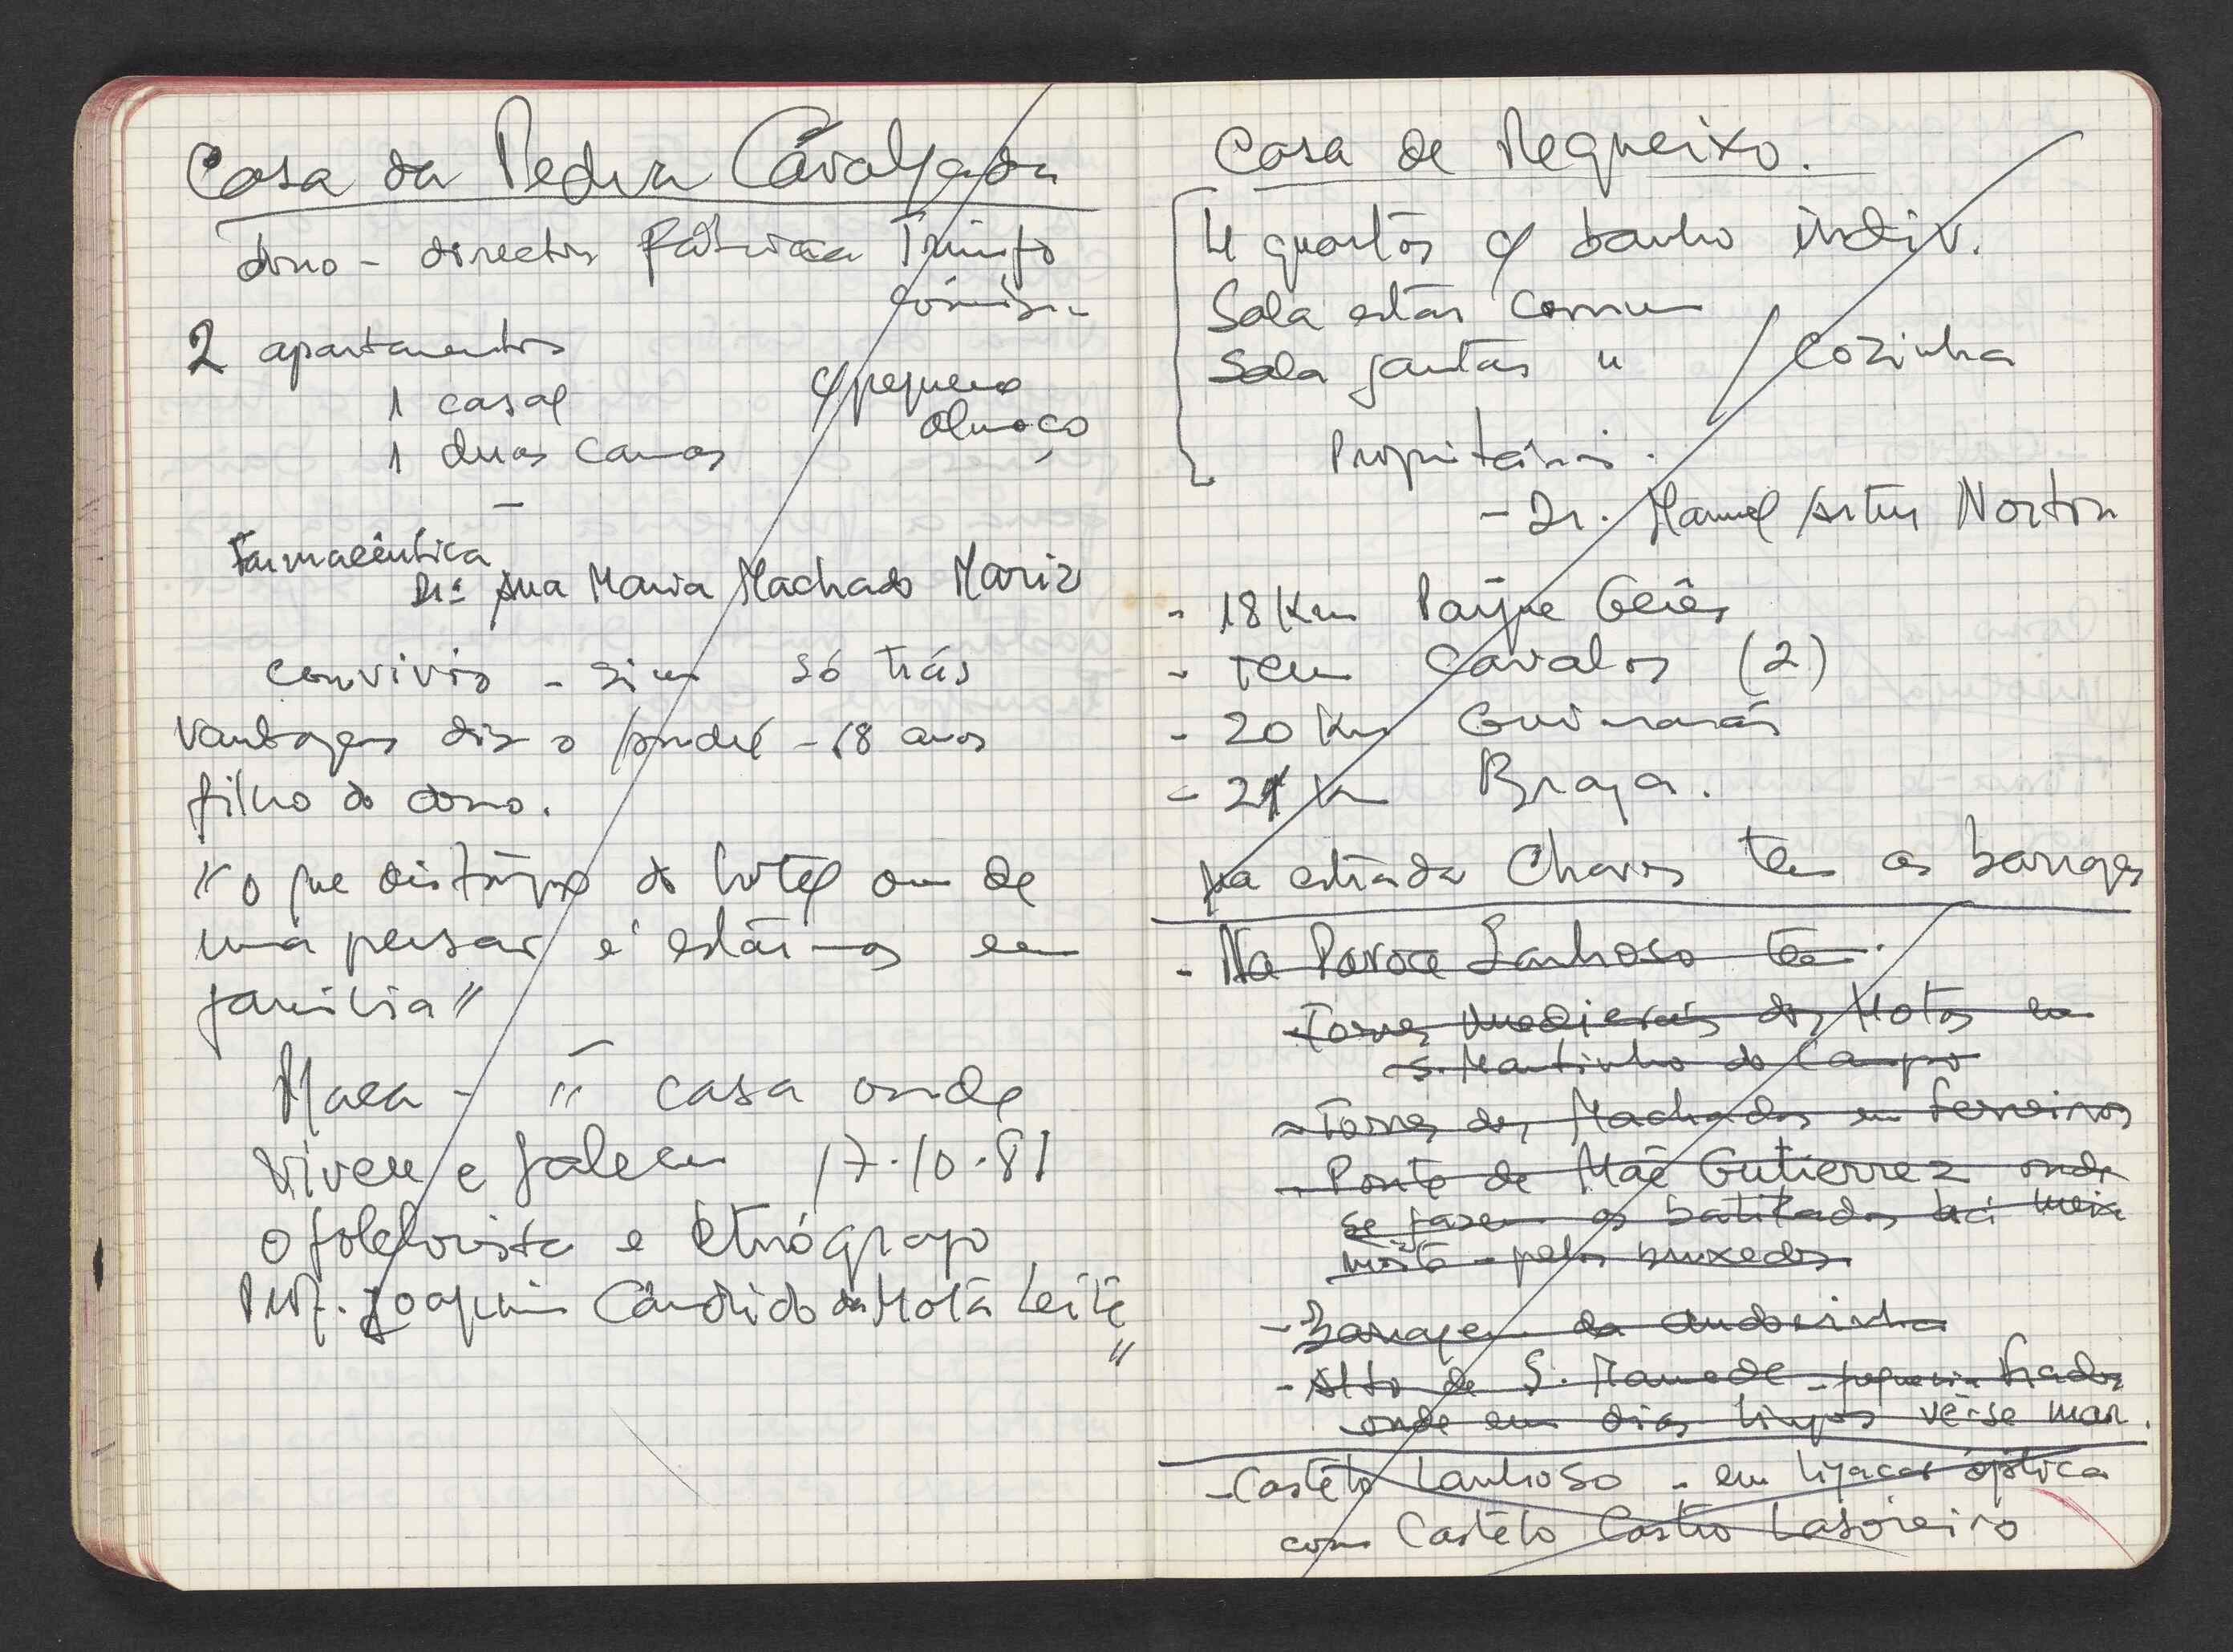 Casa da Pedra Cavalgada
dono - director fábrica Triunfo
2 apartamentos
1 casal
c/ pequeno
almoço
1 duas camas
Farmacêutica
Drª Ana Maria Machado Mariz
convívio - sim só trás
vantagens diz o André - 18 anos
filho do dono.
"o que distingue do hotel ou de
uma pensão é estar-mos em
família"
Placa - " casa onde
viveu e faleceu 17.10.81
o folclorista e etnógrafo
Prof. Joaquim Cândido da Mota Leite
"
Casa de Requeixo.
4 quartos c/ banho indiv.
Sala estar comum
Sala jantar " / Cozinha
Proprietário.
- Dr. Manuel Artur Norton
- 18 Km Parque Gerês
- tem cavalos (2)
- 20 Km Guimarães
- Km Braga.
na estrada Chaves tem as barragens
- Na Póvoa Lanhoso tem.
- Torres medievais dos Motas em
S. Martinho do Campo
- Torres dos Machados em Ferreiros
- Ponte de Mãe Gutierrez onde
se fazem os batizados há meia
noite - pelos bruxedos
- Barragem da Andorinha
- Alto de S. Mamede - freguesia Frades
onde em dias limpos vê-se mar.
- Castelo Lanhoso - em ligação óptica
com Castelo Castro Laboreiro